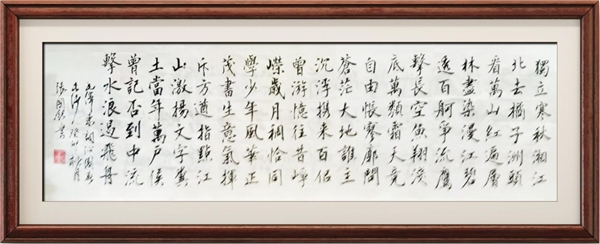 獨立寒秋湘江
北去橘子洲頭
看萬山紅遍層
林盡染漫江碧
透百舸爭流鷹
擊長空魚翔淺
底萬類霜天競
自由悵寥廓問
蒼茫大地誰主
沉浮携来百侶
曾游憶往昔崢
嶸歲月稠恰同
學少年風華正
茂書生意氣揮
斥方遒指點江
山激揚文字糞
土當年萬戶侯
曾記否到中流
擊水浪遏飛舟
毛澤東詞沁園春
長沙